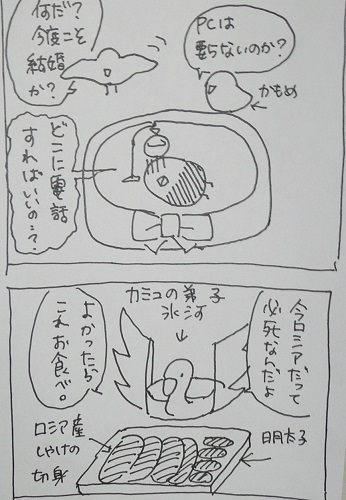 何だ?
今度こそ
結婚
か?
PCは
要らないのか?
かもめ
どこに電話
すればいいの…?
カミュの弟子
氷河
今ロシアだって
必死なんだよ
よかったら
これお食べ。
ロシア産
しゃけの
切身
明太子